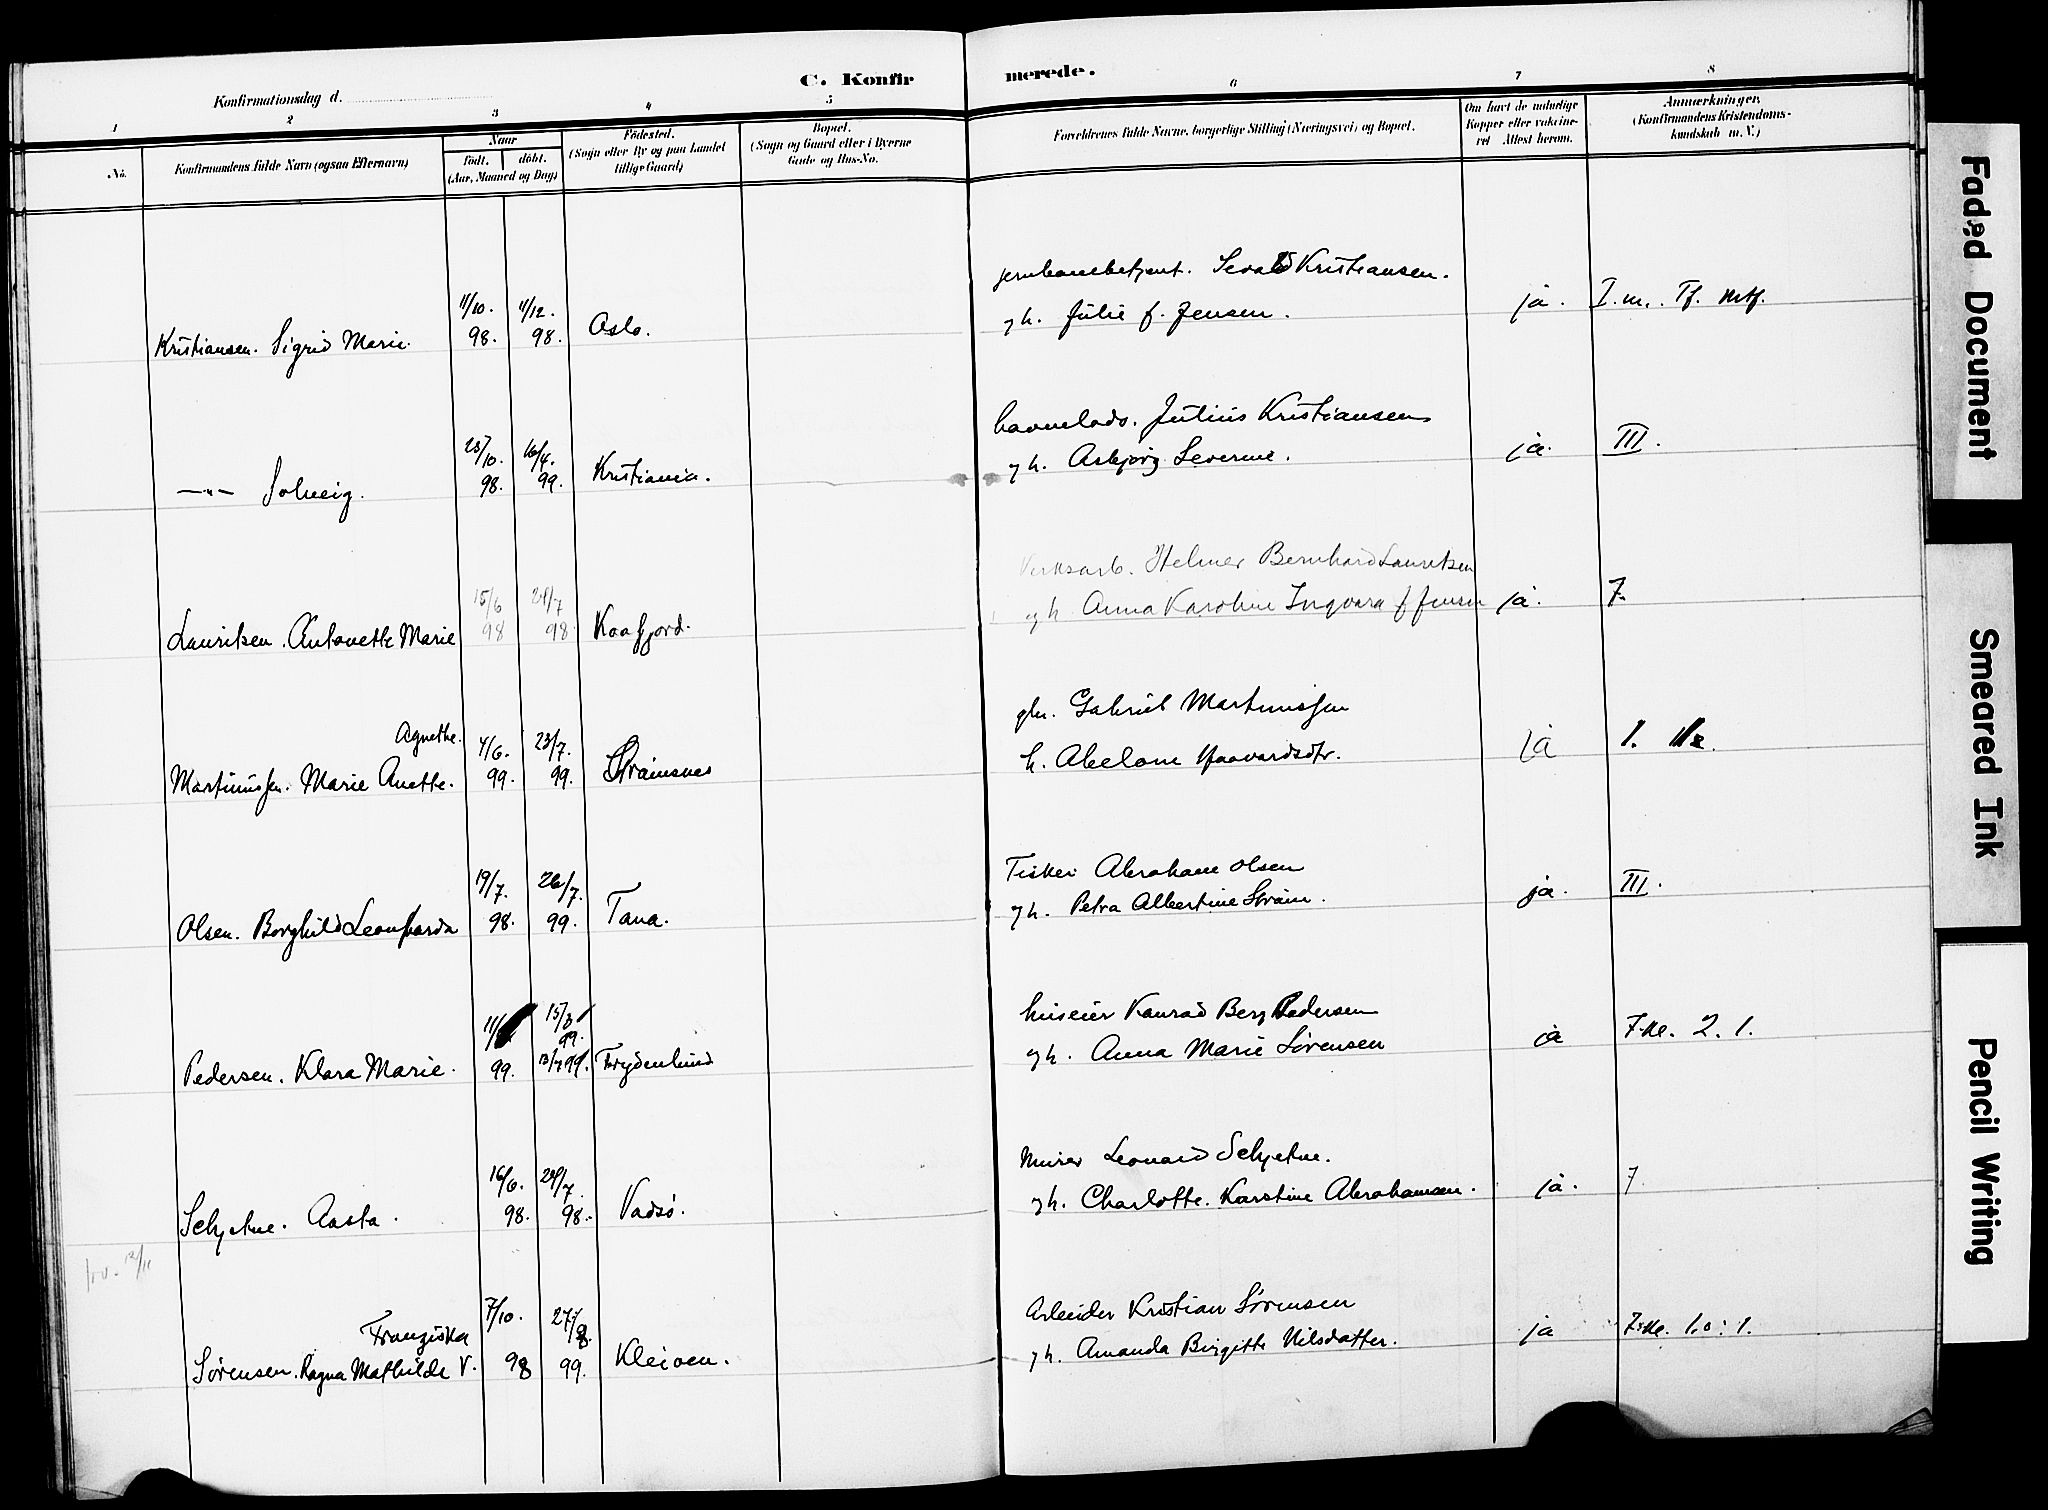 C. Konfirmerede.
Konfirmationsdag d.
1 2 3 4 5 6 7 8
No.
Konfirmandens fulde Navn (ogsaa Efternavn)
Naar
født. døbt.
(Aar, Maaned og Dag)
Fødested.
(Sogn eller By og paa Landet
tillige Gaard)
Bopæl.
(Sogn og Gaard eller i Byerne
Gade og Hus-No.
Forældrenes fulde Navne, borgerlige Stilling (Næringsvei) og Bopæl.
Om havt de naturlige
Kopper eller vaccine-
ret Attest herom.
Anmærkninger,
(Konfirmandens Kristendoms-
kundskab m.V.)
jernbanebetjent. Sevald Kristiansen.
11/10. 11/12.
Kristiansen. Sigrid Marie. 98. 98. Aslo. gh. Julie f. Jensen. ja.
havnelods. Julius Kristiansen
23/10. 16/4.
—"— Solveig. 98. 99. Kristiania. gh. Asbjørg Severine. ja. III.
Verksarb. Helmer Bernhard Lauritsen
15/6 24/7
Lauritsen. Antonette Marie 98 98 Kaafjord. gh Anna Karoline Ingvara f Jensen ja. 7.
gbr. Gabriel Martinussen
Agnethe. 4/6. 23/7.
Martinussen. Marie Anette. 99. 99. Strainsnes h. Abelone Haavardsdtr. ja 1.
Fisker Abraham Olsen
19/7. 26/7.
Olsen. Borghild Leonharda 98. 99. Tana. gh. Petra Albertine Strøm. ja. III.
huseier Konrad Berg Pedersen
11/ 15/8
99.
Pedersen. Klara Marie. 99. 13/7 99. Frydenlund gh. Anna Marie Sørensen ja 7-ne. 2. 1.
Murer Leonard Schjetne.
16/6. 24/7.
Schjetne. Aasta. 98. 98. Vadsø. gh. Charlotte. Karstine Abrahamsen. ja. 7
12/11
Arbeider Kristian Sørensen
Franziska 7/10. 27/8.
Sørensen. Ragna Mathilde V. 98 99. Kleiven. gh. Amanda Birgitte Nilsdatter. ja 7-ne. 1.0:1.
Faded Document
Smeared Ink
Pencil Writing